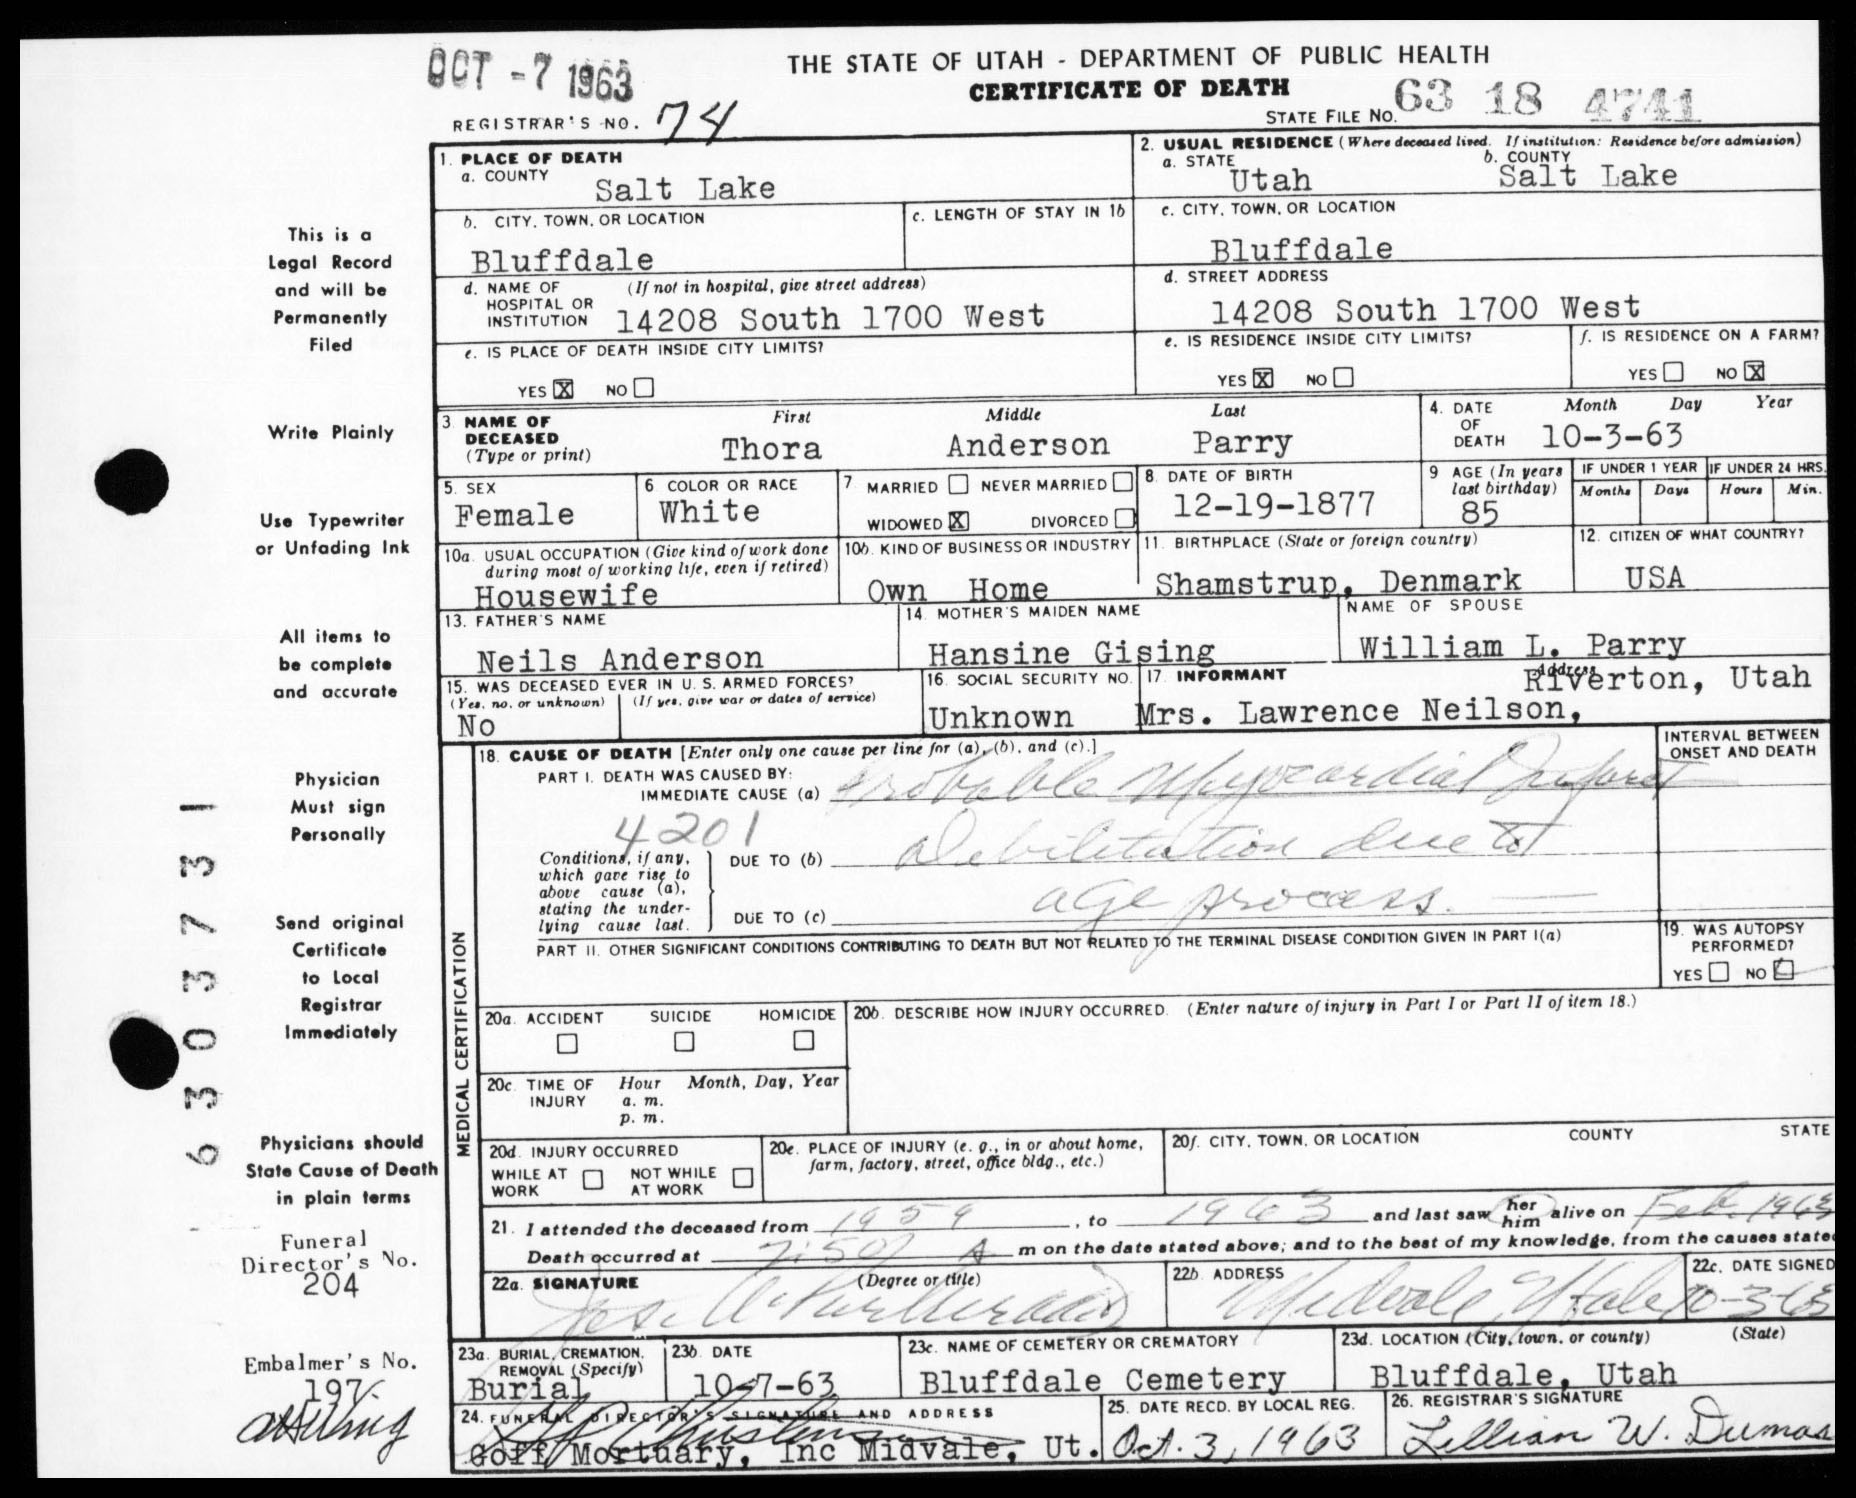 OCT -7 1963
THE STATE OF UTAH - DEPARTMENT OF PUBLIC HEALTH
CERTIFICATE OF DEATH
REGISTRAR'S NO. 74
STATE FILE NO. 63 18 4741
1. PLACE OF DEATH
a. COUNTY
Salt Lake
2. USUAL RESIDENCE (Where deceased lived. If institution: Residence before admission)
a. STATE
Utah
b. COUNTY
Salt Lake
b. CITY, TOWN, OR LOCATION
Bluffdale
c. LENGTH OF STAY IN 1b
c. CITY, TOWN, OR LOCATION
Bluffdale
d. NAME OF HOSPITAL OR INSTITUTION
(If not in hospital, give street address)
14208 South 1700 West
d. STREET ADDRESS
14208 South 1700 West
e. IS PLACE OF DEATH INSIDE CITY LIMITS?
YES X NO
e. IS RESIDENCE INSIDE CITY LIMITS?
YES X NO
f. IS RESIDENCE ON A FARM?
YES NO X
3 NAME OF DECEASED
(Type or print)
First Middle Last
Thora Anderson Parry
4. DATE OF DEATH
Month Day Year
10-3-63
5. SEX
Female
6 COLOR OR RACE
White
7 MARRIED NEVER MARRIED
WIDOWED X DIVORCED
8. DATE OF BIRTH
12-19-1877
9 AGE (In years last birthday)
85
IF UNDER 1 YEAR
Months Days
IF UNDER 24 HRS.
Hours Min.
10a. USUAL OCCUPATION (Give kind of work done
during most of working life, even if retired)
Housewife
10b. KIND OF BUSINESS OR INDUSTRY
Own Home
11. BIRTHPLACE (State or foreign country)
Shamstrup, Denmark
12. CITIZEN OF WHAT COUNTRY?
USA
13. FATHER'S NAME
Neils Anderson
14. MOTHER'S MAIDEN NAME
Hansine Gising
NAME OF SPOUSE
William L. Parry
15. WAS DECEASED EVER IN U. S. ARMED FORCES?
(Yes, no, or unknown) (If yes, give war or dates of service)
No
16. SOCIAL SECURITY NO.
Unknown
17. INFORMANT
Address
Riverton, Utah
Mrs. Lawrence Neilson,
MEDICAL CERTIFICATION
18. CAUSE OF DEATH [Enter only one cause per line for (a), (b), and (c).]
INTERVAL BETWEEN
ONSET AND DEATH
PART I. DEATH WAS CAUSED BY:
IMMEDIATE CAUSE (a) Probable Myocardial Infarct
4201
Conditions, if any,
which gave rise to
above cause (a),
stating the under-
lying cause last.
DUE TO (b) Debilitation due to
DUE TO (c) age process. —
PART II. OTHER SIGNIFICANT CONDITIONS CONTRIBUTING TO DEATH BUT NOT RELATED TO THE TERMINAL DISEASE CONDITION GIVEN IN PART I(a)
19. WAS AUTOPSY
PERFORMED?
YES NO
20a. ACCIDENT SUICIDE HOMICIDE
20b. DESCRIBE HOW INJURY OCCURRED. (Enter nature of injury in Part I or Part II of item 18.)
20c. TIME OF INJURY
Hour Month, Day, Year
a. m.
p. m.
20d. INJURY OCCURRED
WHILE AT WORK NOT WHILE AT WORK
20e. PLACE OF INJURY (e. g., in or about home,
farm, factory, street, office bldg., etc.)
20f. CITY, TOWN, OR LOCATION COUNTY STATE
21. I attended the deceased from 1959, to 1963 and last saw her him alive on Feb. 1963
Death occurred at 7:50 A m on the date stated above; and to the best of my knowledge, from the causes stated
22a. SIGNATURE (Degree or title)
22b. ADDRESS
Midvale, Utah
22c. DATE SIGNED
10-3-63
23a. BURIAL, CREMATION,
REMOVAL (Specify)
Burial
23b. DATE
10-7-63
23c. NAME OF CEMETERY OR CREMATORY
Bluffdale Cemetery
23d. LOCATION (City, town, or county) (State)
Bluffdale, Utah
24. FUNERAL DIRECTOR'S SIGNATURE AND ADDRESS
Goff Mortuary, Inc Midvale, Ut.
25. DATE RECD. BY LOCAL REG.
Oct. 3, 1963
26. REGISTRAR'S SIGNATURE
Lillian W. Dumas
This is a
Legal Record
and will be
Permanently
Filed
Write Plainly
Use Typewriter
or Unfading Ink
All items to
be complete
and accurate
Physician
Must sign
Personally
Send original
Certificate
to Local
Registrar
Immediately
Physicians should
State Cause of Death
in plain terms
6303731
Funeral
Director's No.
204
Embalmer's No.
197